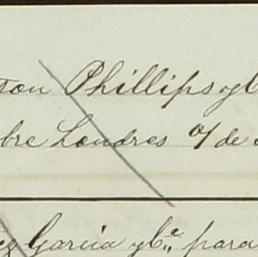 son Phillips y C
bre Londres o/ de
ez Garcia y Cª, para